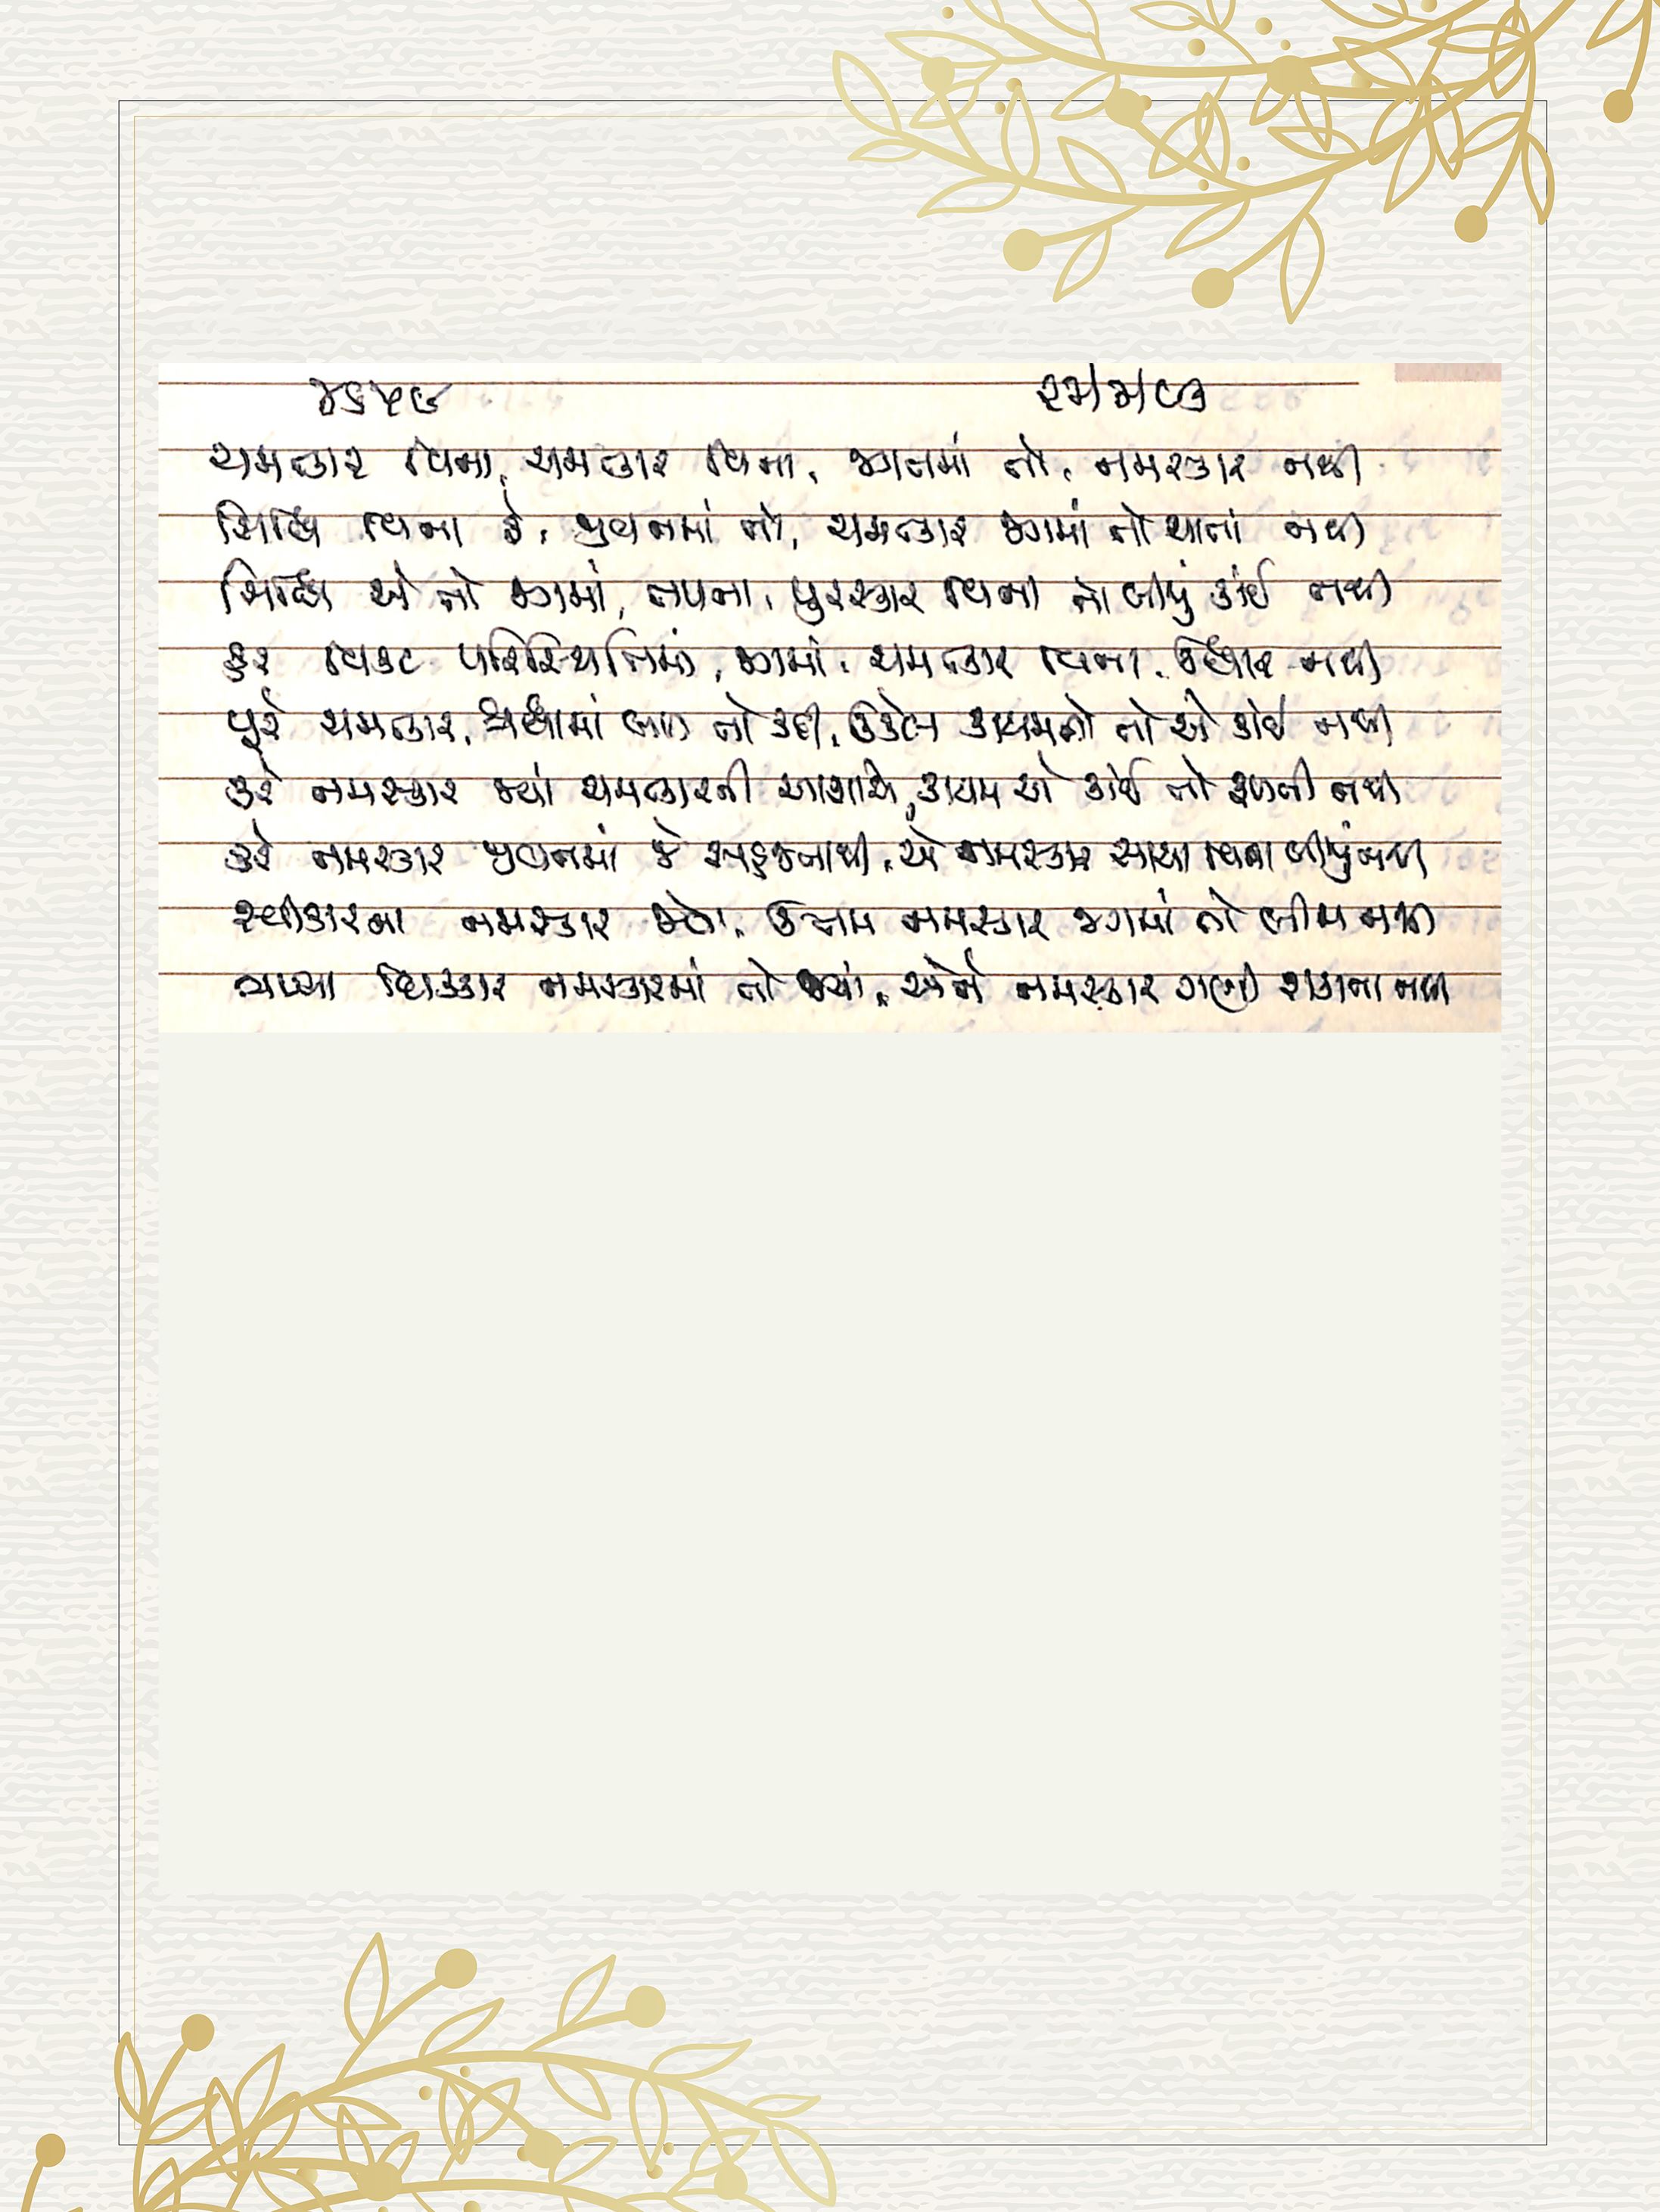 ૪૬૫૯ ૨૪/૪/૯૩
ચમત્કાર વિના, ચમત્કાર વિના, જગતમાં તો, નમસ્કાર નથી
સિદ્ધિ વિના રે, જીવનમાં તો, ચમત્કાર જગમાં તો થાતાં નથી
સિદ્ધિ એ તો જગમાં, તપના, પુરસ્કાર વિના તો બીજું કાંઈ નથી
કૂર વિકટ પરિસ્થિતિમાં, જગમાં, ચમત્કાર વિના, ઉદ્ધાર નથી
પૂરે ચમત્કાર, શ્રદ્ધામાં જાન તો કદી, ઉકેલ કાયમનો તો એ કાંઈ નથી
કરે નમસ્કાર જ્યાં ચમત્કારની આશાએ, કાયમ એ કાંઈ તો ફળતી નથી
કરે નમસ્કાર જીવનમાં જે સહુજનાથી, એ નમસ્કાર સાચા વિના બીજું નથી
સ્વીકારના નમસ્કાર જેવા, ઉત્તમ નમસ્કાર જગમાં તો બીજા નથી
ત્રાપ્યા ધિક્કાર નમસ્કારમાં તો જ્યાં, એને નમસ્કાર ગણી શકાતા નથી